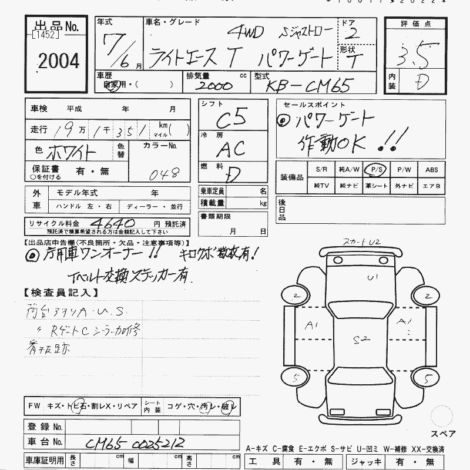 出品No.
[1452]
2004
年式
7/6月
車名・グレード
4WD Sジャストロー
ライトエース T パワーゲート
ドア
2
形状
T
評価点
3.5
内装
D
車歴
自家用・( )
排気量
2000 cc
型式
KB-CM65
車検 平成 年 月
走行 19万1千351 km (マイル)
色 ホワイト 色替 カラーNo. 048
保証書 有・無
○を付ける
外車 モデル年式 年
ハンドル 左・右 ディーラー・並行
リサイクル料金 4640 円 預託済
預託済で積算を希望される方は金額記入して下さい
シフト
C5
冷房
AC
燃料
D
乗車定員 名
積載量 kg
書類期限
月 日
セールスポイント
◎パワーゲート
作動OK!!
装備品
S/R 純A/W P/S P/W ABS
純TV 純ナビ 革シート 外ナビ エアB
後日品
【出品店申告欄(不良箇所・欠品・注意事項等)】
Tベルト交換ステッカー有.
【検査員記入】
荷台 A・U・S
スカートU2
U1
2
2
A1
A1
S2
5
5
スペア
FW キズ・トビ石・割レX・リペア
シート内装
コゲ・穴・汚レ・破レ
登録No.
車台No. CM65 0025212
車庫証明用 長さ cm 幅 cm 高さ cm
A-キズ C-腐食 E-エクボ S-サビ U-凹ミ W-補修 XX-交換済
工具 有・無 ジャッキ 有・無